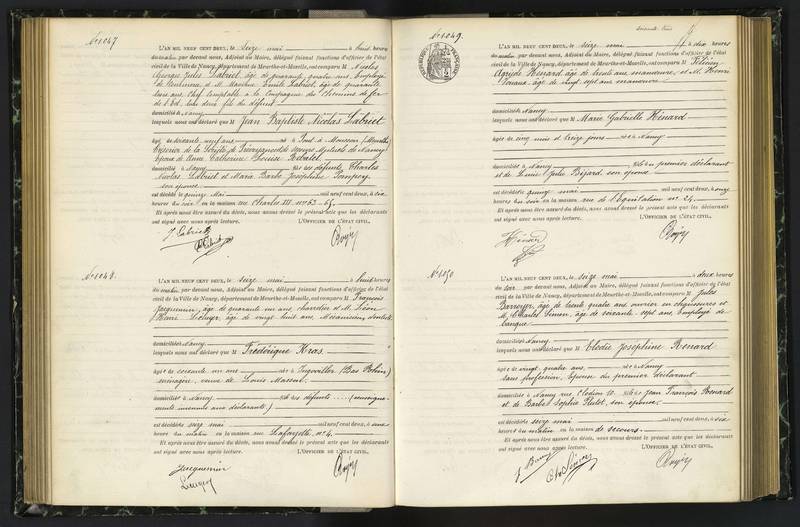 N° 1047
L'AN MIL NEUF CENT DEUX, le seize mai à huit heures
du matin par devant nous, Adjoint au Maire, délégué faisant fonctions d'officier de l'état
civil de la Ville de Nancy, département de Meurthe-et-Moselle, ont comparu M Nicolas
Georges Jules Gabriel, âgé de quarante quatre ans, employé
de et M Émile Gabriel, âgé de quarante
ans, chef comptable à la Compagnie des Chemins de fer
de l'Est, tous deux fils du défunt
domicilié à Nancy
lesquels nous ont déclaré que M Jean Baptiste Nicolas Gabriel
âgé de soixante neuf ans né à Pont à Mousson (Meurthe)
de la Société de Prévoyance et de Secours Mutuels de Nancy
époux de Anne Catherine Louise
domicilié à Nancy fils des défunts Charles
Nicolas Gabriel et Maria Barbe Joséphine Pompey
son épouse
est décédé le quinze mai mil neuf cent deux, à six
heures du soir en sa maison rue Charles III, nos 63-65,
Et après nous être assuré du décès, nous avons dressé le présent acte que les déclarants
ont signé avec nous après lecture. L'OFFICIER DE L'ÉTAT CIVIL,
J Gabriel
N° 1048
L'AN MIL NEUF CENT DEUX, le seize mai à huit heures
du matin, par devant nous, Adjoint au Maire, délégué faisant fonctions d'officier de l'état
civil de la Ville de Nancy, département de Meurthe-et-Moselle, ont comparu M François
Jacquemin, âgé de quarante un ans, charretier et M Léon
Henri âgé de vingt huit ans, Mécanicien dentiste
domiciliés à Nancy
lesquels nous ont déclaré que M Frédérique Kras
âgée de soixante un ans née à Ingwiller (Bas Rhin)
ménagère, veuve de Louis
domiciliée à Nancy fille de défunts (renseigne-
ments inconnus aux déclarants)
est décédée seize mai mil neuf cent deux, à une
heure du matin en sa maison rue Lafayette, no 4.
Et après nous être assuré du décès, nous avons dressé le présent acte que les déclarants
ont signé avec nous après lecture. L'OFFICIER DE L'ÉTAT CIVIL,
Jacquemin
N° 1049.
L'AN MIL NEUF CENT DEUX, le seize mai à dix heures
du matin par devant nous, Adjoint au Maire, délégué faisant fonctions d'officier de l'état
civil de la Ville de Nancy, département de Meurthe-et-Moselle, ont comparu M Félicien
Hénard, âgé de trente ans, manœuvre, et M Henri
âgé de vingt sept ans manœuvre
domiciliés à Nancy
lesquels nous ont déclaré que M Marie Gabrielle Hénard
âgée de cinq mois et treize jours née à Nancy
domiciliée à Nancy fille du premier déclarant
et de Julie son épouse
est décédée quinze mai mil neuf cent deux, à onze
heures du soir en sa maison rue de l'Équitation no 24.
Et après nous être assuré du décès, nous avons dressé le présent acte que les déclarants
ont signé avec nous après lecture. L'OFFICIER DE L'ÉTAT CIVIL,
Hénard
N° 1050
L'AN MIL NEUF CENT DEUX, le seize mai à deux heures
du soir par devant nous, Adjoint au Maire, délégué faisant fonctions d'officier de l'état
civil de la Ville de Nancy, département de Meurthe-et-Moselle, ont comparu M Jules
âgé de trente quatre ans ouvrier en chaussures et
M Charles Simon, âgé de soixante sept ans, Employé de
banque
domiciliés à Nancy
lesquels nous ont déclaré que M Elodie Joséphine Renard
âgée de vingt quatre ans, née à Nancy
sans profession, épouse du premier déclarant
domiciliée à Nancy rue fille de Jean François Renard
et de Barbe Sophie son épouse
est décédée seize mai mil neuf cent deux, à six
heures du matin en la maison de secours.
Et après nous être assuré du décès, nous avons dressé le présent acte que les déclarants
ont signé avec nous après lecture. L'OFFICIER DE L'ÉTAT CIVIL,
Ch Simon